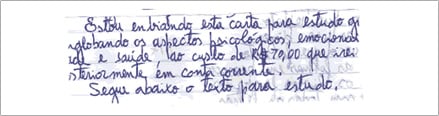 Estou enbiando esta carta para estudo
nglobando os aspectos psicológicos, emocionai
e saúde ao custo de R$ 70,00 que irei
steriormente em conta corrente.
Segue abaixo o texto para estudo.